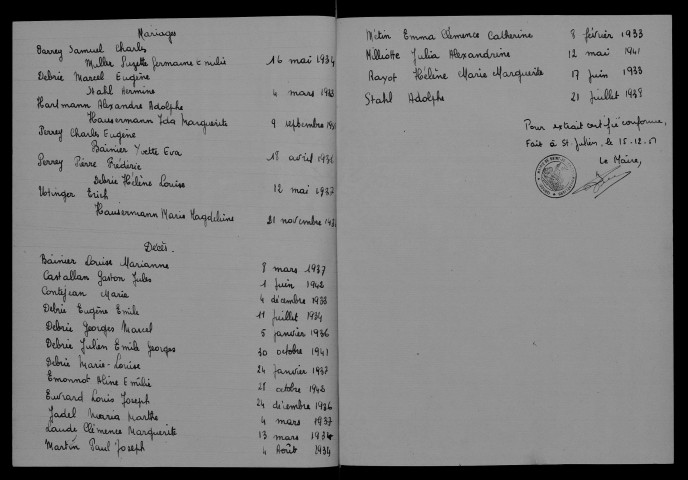 Mariages
Parrey Samuel Charles
Muller Suzette Germaine Emilie 16 mai 1934
Debrie Marcel Eugène
Stahl Hermine 4 mars 1933
Hartmann Alexandre Adolphe
Hausermann Ida Marguerite 9 septembre
Perrey Charles Eugène
Bainier Yvette Eva 18 avril 1936
Perrey Pierre Frédéric
Debrie Hélène Louise 12 mai 1937
Utinger Erich
Hausermann Marie Magdeleine 21 novembre
Décès.
Bainier Louise Marianne 8 mars 1937
Castallan Gaston Jules 1 juin 1942
Contejean Marie 4 décembre 1933
Debrie Eugène Emile 11 juillet 1934
Debrie Georges Marcel 5 janvier 1936
Debrie Julien Emile Georges 30 octobre 1941
Debrie Marie-Louise 24 janvier 1937
Emonnot Aline Emilie 28 octobre 1942
Euvrard Louis Joseph 24 décembre 1936
Jadel Maria Marthe 4 mars 1937
Laude Clémence Marguerite 13 mars 1934
Martin Paul Joseph 4 Août 1934
Métin Emma Clémence Catherine 8 février 1933
Milliotte Julia Alexandrine 12 mai 1941
Rayot Hélène Marie Marguerite 17 juin 1933
Stahl Adolphe 21 juillet 1938
Pour extrait certifié conforme,
Fait à St. Julien, le 15.12.51
Le Maire,